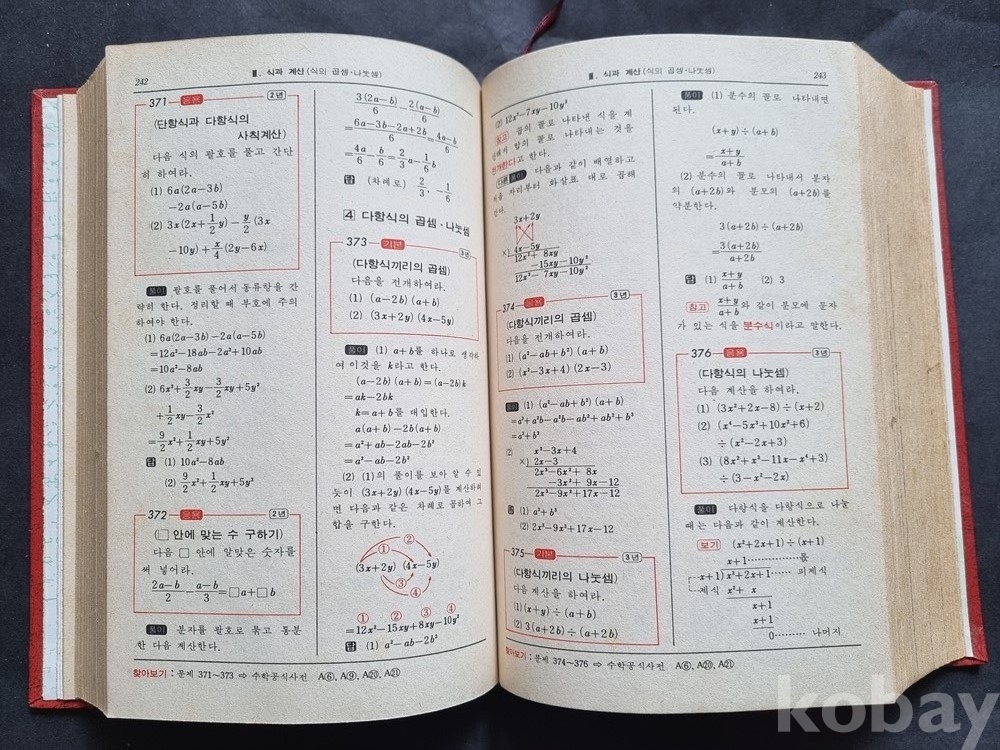 242
Ⅲ. 식과 계산 (식의 곱셈·나눗셈)
371 응용 2년
(단항식과 다항식의
사칙계산)
다음 식의 괄호를 풀고 간단
히 하여라.
(1) 6a(2a−3b)
−2a(a−5b)
(2) 3x(2x+1/2 y)−y/2 (3x
−10y)+x/4 (2y−6x)
풀이 괄호를 풀어서 동류항을 간
략히 한다. 정리할 때 부호에 주의
하여야 한다.
(1) 6a(2a−3b)−2a(a−5b)
=12a²−18ab−2a²+10ab
=10a²−8ab
(2) 6x²+3/2 xy−3/2 xy+5y²
+1/2 xy−3/2 x²
=9/2 x²+1/2 xy+5y²
답 (1) 10a²−8ab
(2) 9/2 x²+1/2 xy+5y²
372 응용 2년
(□ 안에 맞는 수 구하기)
다음 □ 안에 알맞은 숫자를
써 넣어라.
(2a−b)/2−(a−b)/3=□a+□b
풀이 분자를 괄호로 묶고 통분
한 다음 계산한다.
3(2a−b)/6−2(a−b)/6
=(6a−3b−2a+2b)/6=(4a−b)/6
=4a/6−b/6=2/3 a−1/6 b
답 (차례로) 2/3, −1/6
4 다항식의 곱셈·나눗셈
373 기본 3년
(다항식끼리의 곱셈)
다음을 전개하여라.
(1) (a−2b)(a+b)
(2) (3x+2y)(4x−5y)
풀이 (1) a+b를 하나로 생각하
여 이것을 k라고 한다.
(a−2b)(a+b)=(a−2b)k
=ak−2bk
k=a+b를 대입한다.
a(a+b)−2b(a+b)
=a²+ab−2ab−2b²
=a²−ab−2b²
(2) (1)의 풀이를 보아 알 수 있
듯이 (3x+2y)(4x−5y)를 계산하려
면 다음과 같은 차례로 곱하여 그
합을 구한다.
②
①
(3x+2y)(4x−5y)
③
④
① ② ③ ④
=12x²−15xy+8xy−10y²
답 (1) a²−ab−2b²
찾아보기 : 문제 371~373 ⇨ 수학공식사전 A⑥, A⑨, A⑳, A㉑
Ⅲ. 식과 계산 (식의 곱셈·나눗셈)
243
(2) 12x²−7xy−10y²
참고 곱의 꼴로 나타낸 식을 계
산해서 합의 꼴로 나타내는 것을
전개한다고 한다.
다른풀이 다음과 같이 배열하고
자리부터 화살표 대로 곱해
간다.
3x+2y
×) 4x−5y
12x²+ 8xy
−15xy−10y²
12x²− 7xy−10y²
374 응용 3년
(다항식끼리의 곱셈)
다음을 전개하여라.
(1) (a²−ab+b²)(a+b)
(2) (x²−3x+4)(2x−3)
풀이 (1) (a²−ab+b²)(a+b)
=a³+a²b−a²b−ab²+ab²+b³
=a³+b³
(2) x²−3x+4
×) 2x−3
2x³−6x²+ 8x
−3x²+ 9x−12
2x³−9x²+17x−12
답 (1) a³+b³
(2) 2x³−9x²+17x−12
375 기본 3년
(다항식끼리의 나눗셈)
다음 계산을 하여라.
(1) (x+y)÷(a+b)
(2) 3(a+2b)÷(a+2b)
풀이 (1) 분수의 꼴로 나타내면
된다.
(x+y)÷(a+b)
=(x+y)/(a+b)
(2) 분수의 꼴로 나타내서 분자
의 (a+2b)와 분모의 (a+2b)를
약분한다.
3(a+2b)÷(a+2b)
=3(a+2b)/(a+2b)
답 (1) (x+y)/(a+b) (2) 3
참고 (x+y)/(a+b)와 같이 분모에 문자
가 있는 식을 분수식이라고 말한다.
376 응용 3년
(다항식의 나눗셈)
다음 계산을 하여라.
(1) (3x²+2x−8)÷(x+2)
(2) (x⁴−5x³+10x²+6)
÷(x²−2x+3)
(3) (8x²+x³−11x−x⁴+3)
÷(3−x²−2x)
풀이 다항식을 다항식으로 나눌
때는 다음과 같이 계산한다.
보기 (x²+2x+1)÷(x+1)
x+1……몫
x+1) x²+2x+1……피제식
제식 x²+ x
x+1
x+1
0……나머지
찾아보기 : 문제 374~376 ⇨ 수학공식사전 A⑥, A⑳, A㉑
kobay